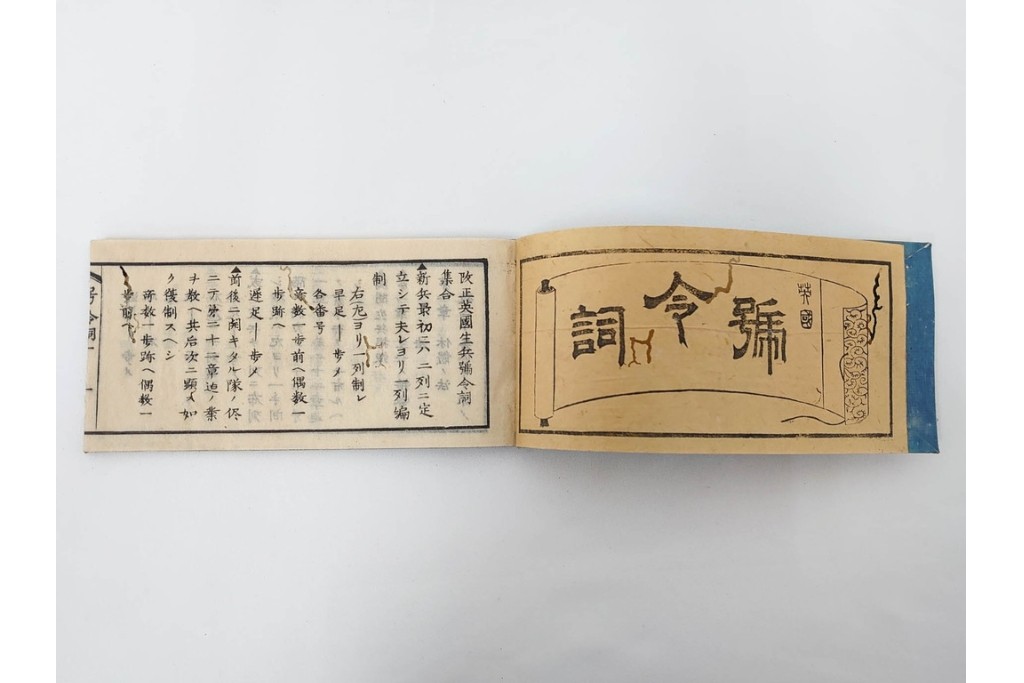 英國
號令詞
改正英國生兵號令詞
集合
▲新兵最初ニハ二列ニ定
立シテ夫レヨリ一列編
制
右左ヨリ一列制レ
早足ー歩メ
各番号
奇数一歩前ヘ偶数一
歩跡ヘ
遅足ー歩メ
▲前後ニ開キタル隊ノ侭
ニテ第二十二章迠ノ業
ヲ教ヘ其后次ニ顕ス如
ク復制スヘシ
奇数一歩跡ヘ偶数一
歩前ヘ